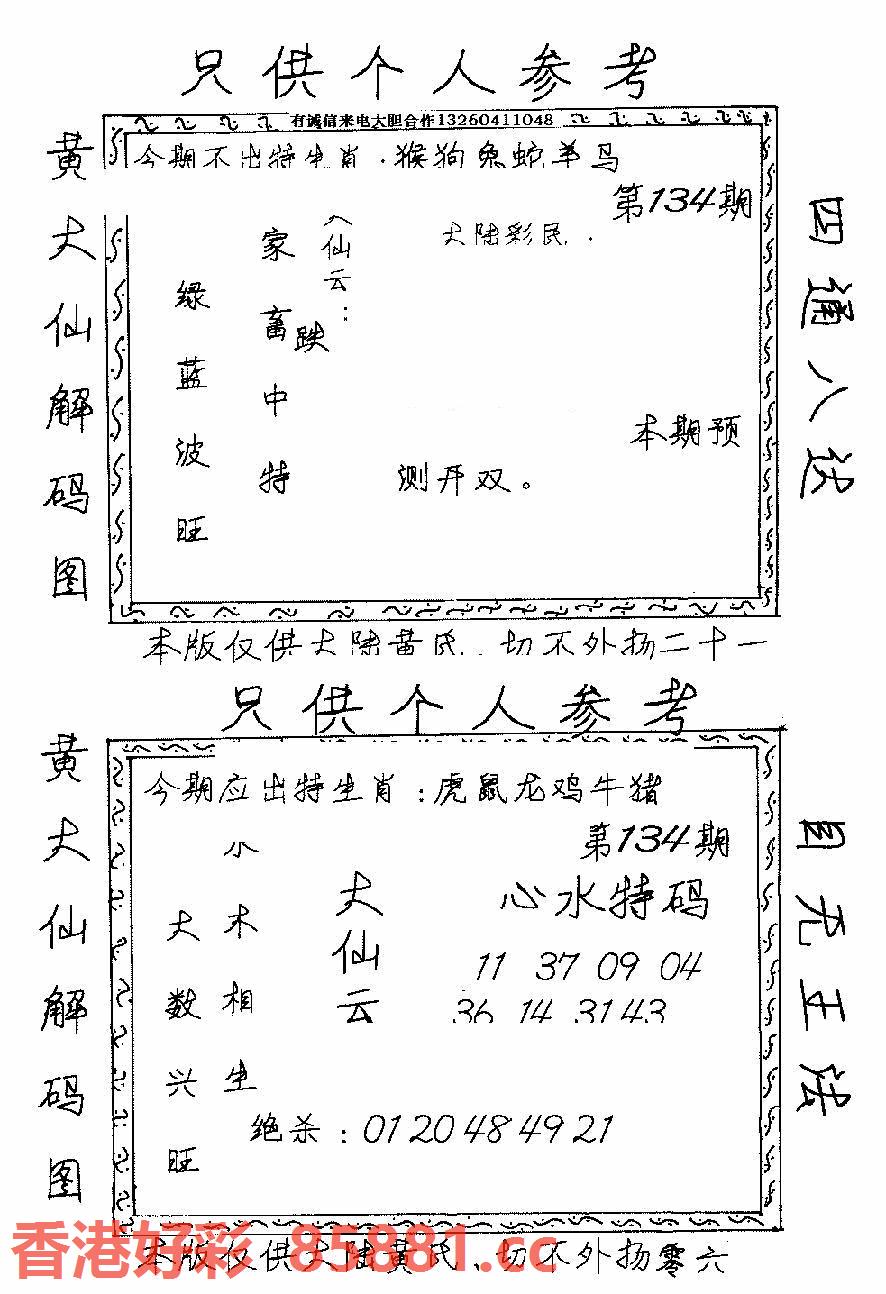 只供个人参考
有诚信来电大胆合作13260411048
今期不出特生肖.猴狗兔蛇羊马
第134期
黄大仙解码图
绿蓝波旺
家畜中特
仙云:
跌
大陆彩民.
本期预
测开双。
四通八达
本版仅供大陆黄民..切不外扬二十一
只供个人参考
今期应出特生肖:虎鼠龙鸡牛猪
第134期
黄大仙解码图
大数兴旺
小木相生
大仙云
心水特码
11 37 09 04
36 14 31 43
绝杀:01 20 48 49 21
自无王法
本版仅供大陆黄民、切不外扬零六
香港好彩 85881.cc